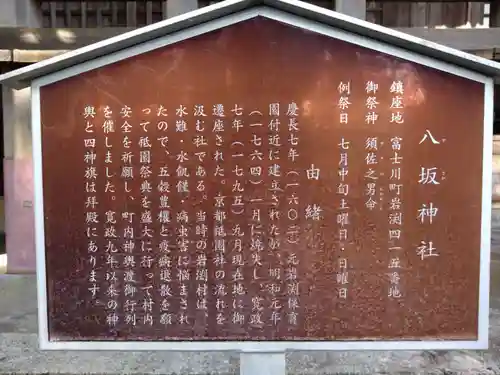 八坂神社
鎮座地 富士川町岩渕四一五番地
御祭神 須佐之男命
例祭日 七月中旬土曜日・日曜日
由緒
慶長七年（一六〇二）元岩渕保育
園付近に建立されたが、明和元年
（一七六四）一月に焼失し、寛政
七年（一七九五）元月現在地に御
遷座された。京都祇園社の流れを
汲む社である。当時の岩渕村は、
水難・水飢饉・病虫害に悩まされ
たので、五穀豊穣と疫病退散を願
って祗園祭典を盛大に行って村内
安全を祈願し、町内神輿渡御行列
を催しました。寛政九年以来の神
輿と四神旗は拝殿にあります。